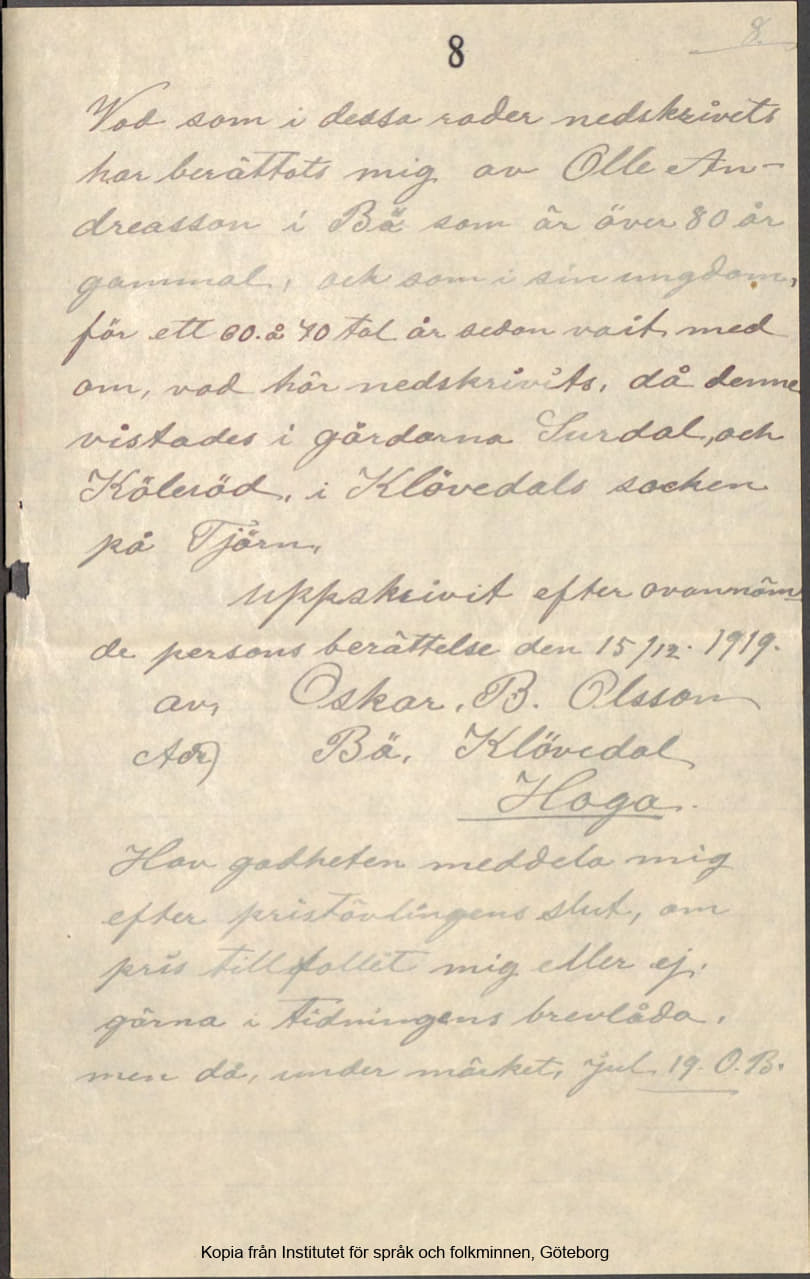 8
8.
Vad som i dessa rader nedskrivits
har berättats mig av Olle An-
dreasson i Bä som är över 80 år
gammal, och som i sin ungdom,
för ett 60. à 70 tal år sedan varit med
om, vad här nedskrivits, då denne
vistades i gårdarna Surdal, och
Kölesöd, i Klövedals socken
på Tjörn,
uppskrivit efter ovannäm-
de persons berättelse den 15/12. 1919.
av, Oskar. B. Olsson
Adr) Bä, Klövedal
Hoga.
Hav godheten meddela mig
efter pristävlingens slut, om
pris tillfallit mig eller ej.
gärna i tidningens brevlåda,
men då, under märket, Jul 19. O. B.
Kopia från Institutet för språk och folkminnen, Göteborg